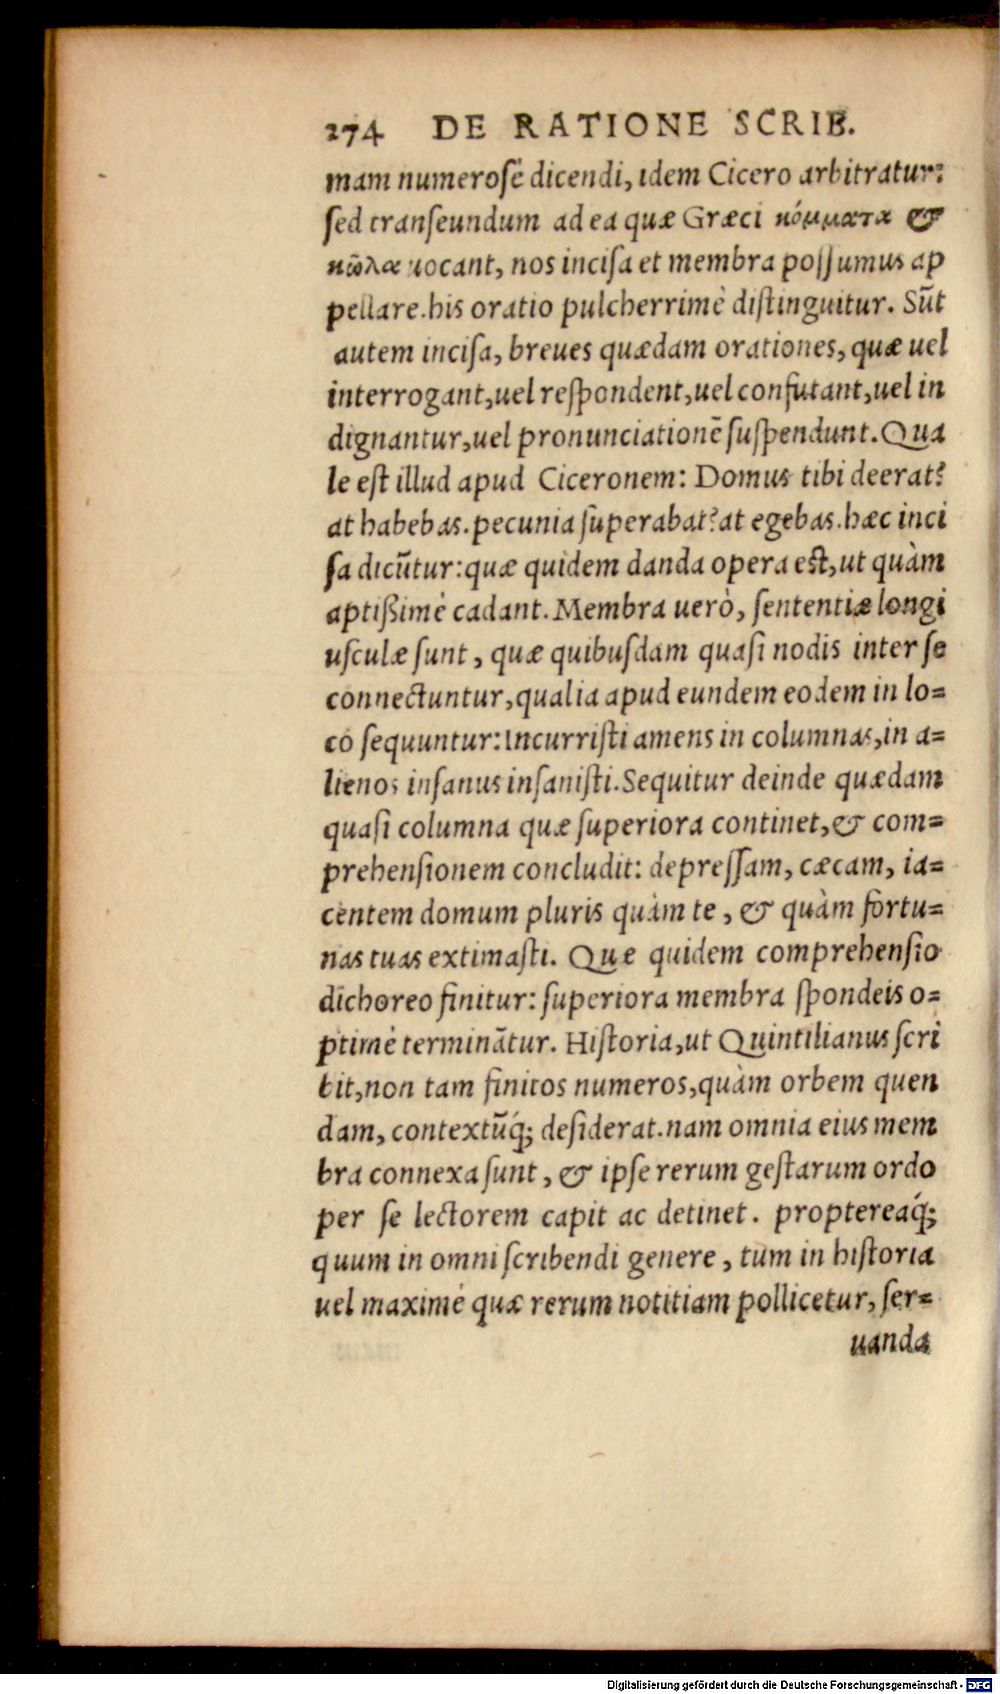 274 DE RATIONE SCRIB.
mam numerosè dicendi, idem Cicero arbitratur:
sed transeundum ad ea quæ Græci κόμματα &
κῶλα uocant, nos incisa et membra possumus ap
pellare. his oratio pulcherrimè distinguitur. Sūt
autem incisa, breues quædam orationes, quæ uel
interrogant, uel respondent, uel confutant, uel in
dignantur, uel pronunciationē suspendunt. Qua
le est illud apud Ciceronem: Domus tibi deerat?
at habebas. pecunia superabat? at egebas. hæc inci
sa dicūtur: quæ quidem danda opera est, ut quàm
aptißimè cadant. Membra uerò, sententiæ longi
usculæ sunt, quæ quibusdam quasi nodis inter se
connectuntur, qualia apud eundem eodem in lo=
co sequuntur: Incurristi amens in columnas, in a=
lienos insanus insanisti. Sequitur deinde quædam
quasi columna quæ superiora continet, & com=
prehensionem concludit: depressam, cæcam, ia=
centem domum pluris quàm te, & quàm fortu=
nas tuas extimasti. Quæ quidem comprehensio
dichoreo finitur: superiora membra spondeis o=
ptimè terminātur. Historia, ut Quintilianus scri
bit, non tam finitos numeros, quàm orbem quen
dam, contextūq́; desiderat. nam omnia eius mem
bra connexa sunt, & ipse rerum gestarum ordo
per se lectorem capit ac detinet. proptereaq́;
quum in omni scribendi genere, tum in historia
uel maximè quæ rerum notitiam pollicetur, ser=
uanda
Digitalisierung gefördert durch die Deutsche Forschungsgemeinschaft - DFG